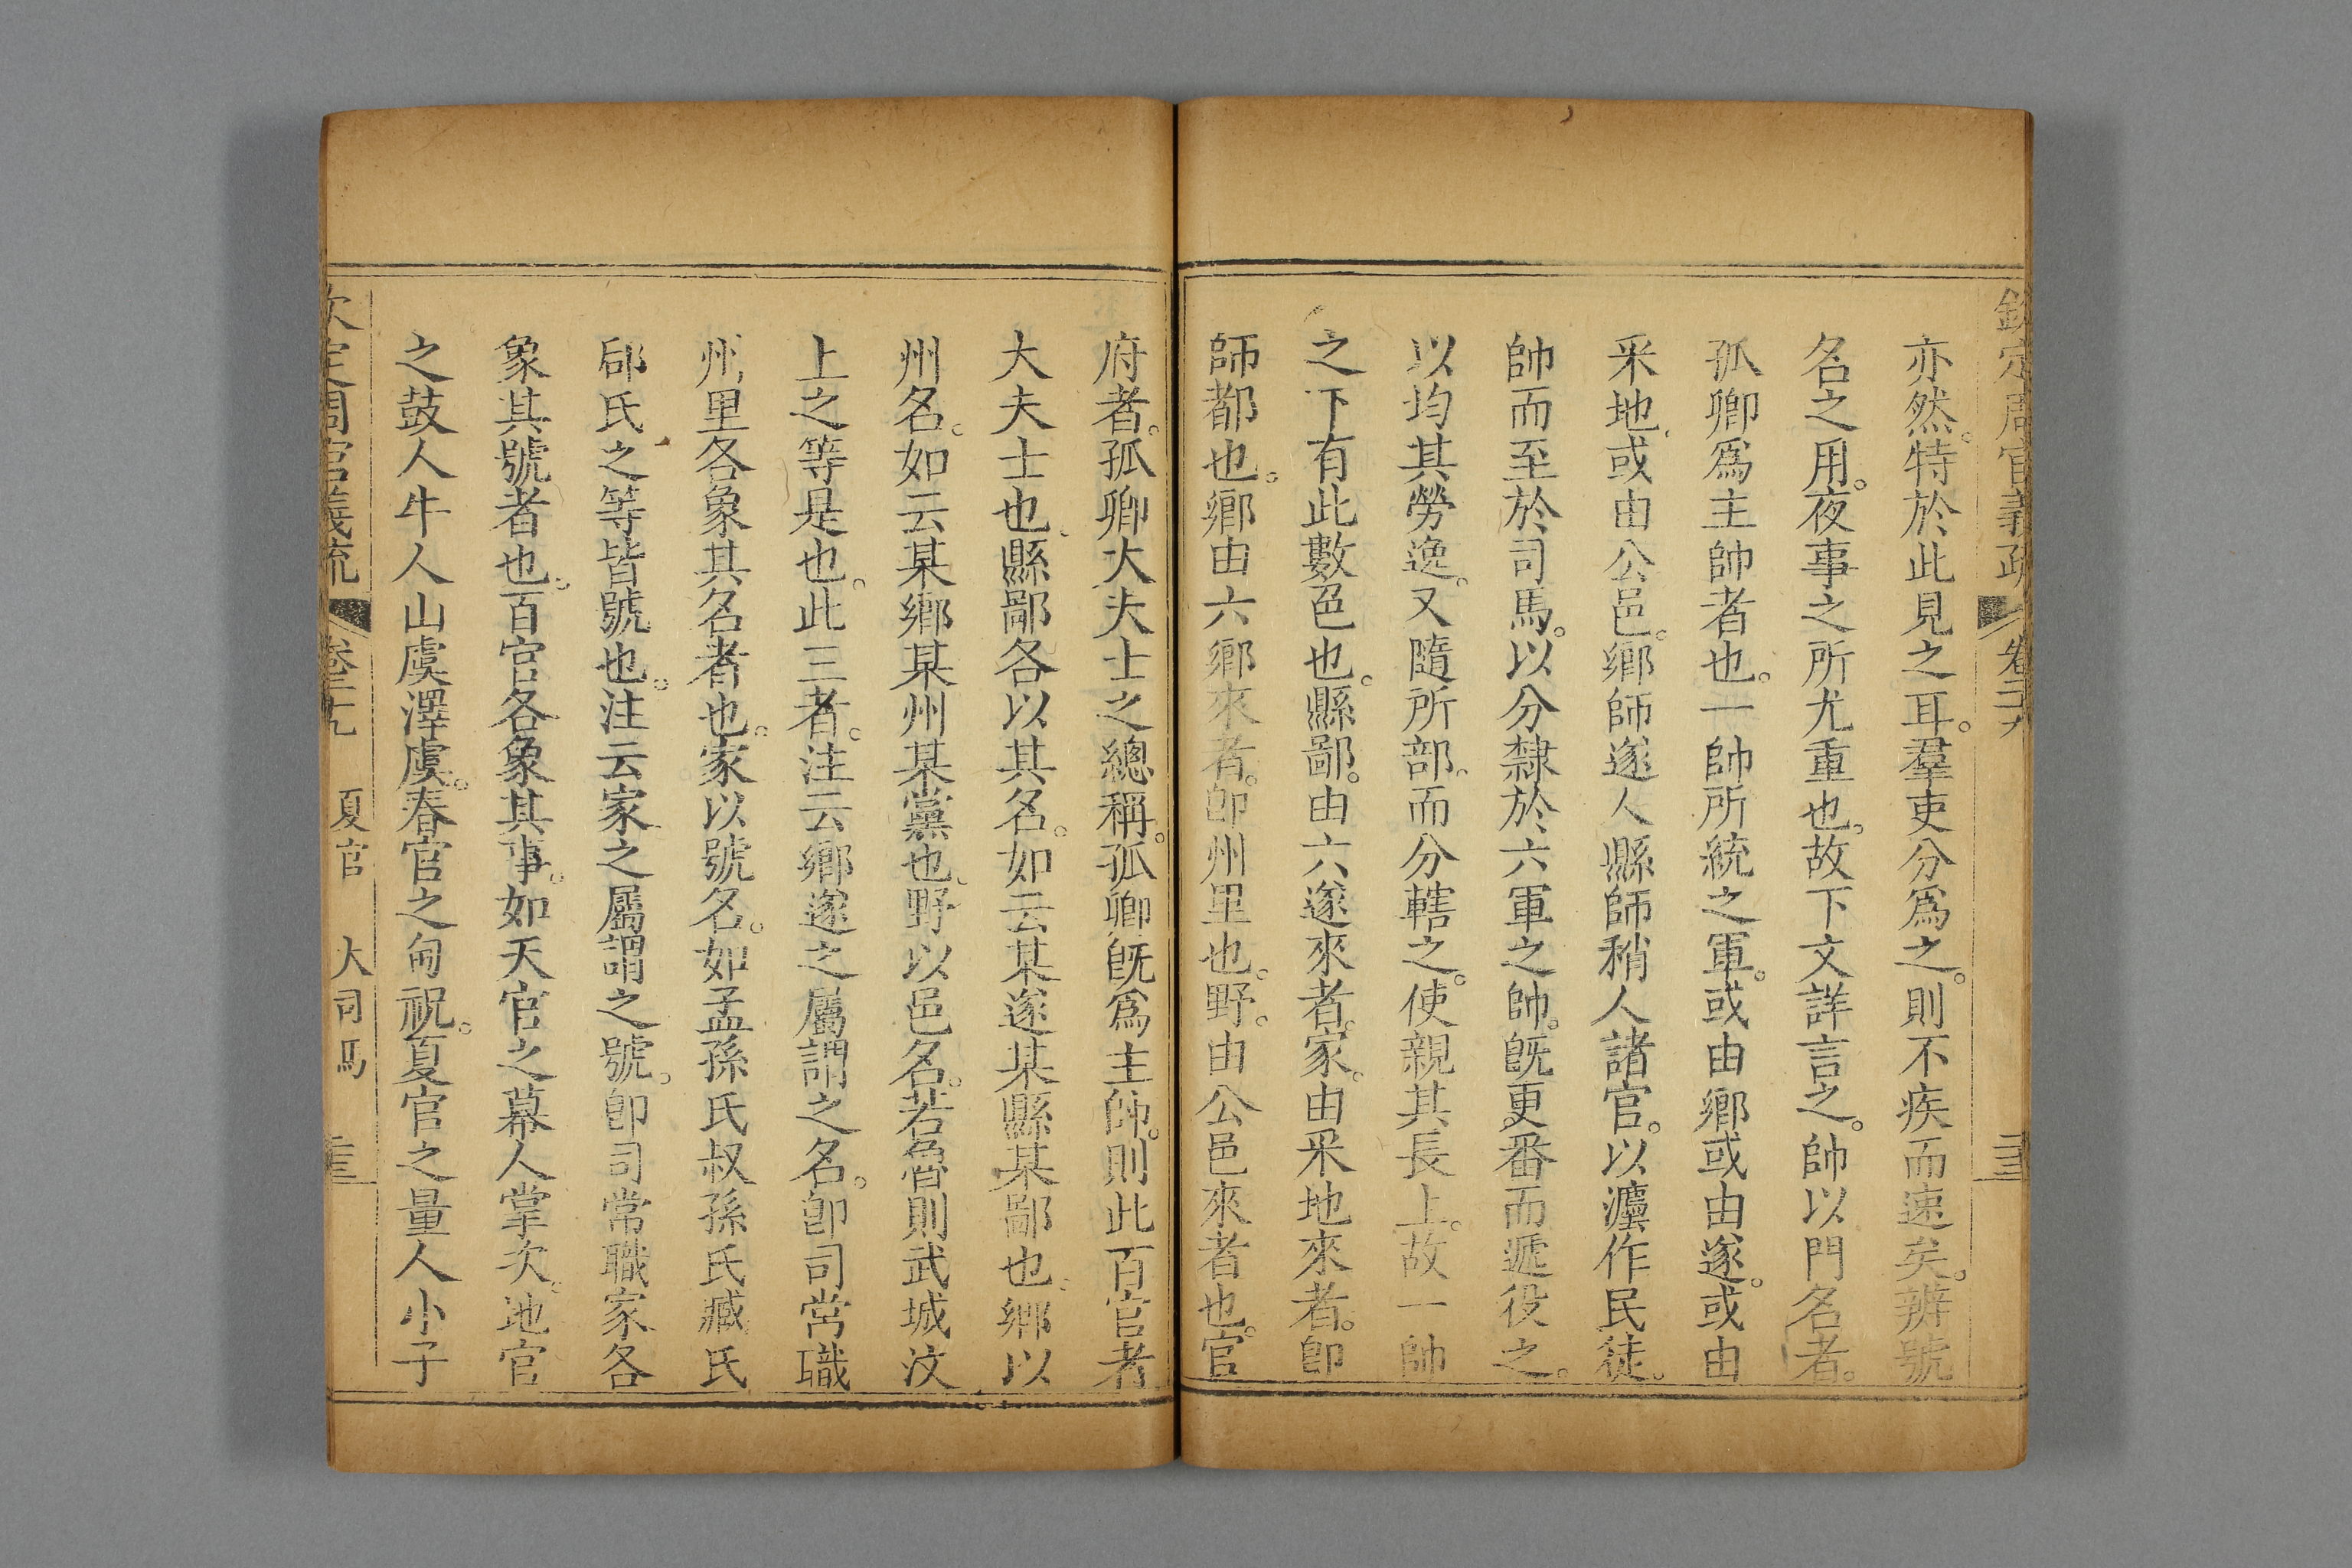 欽定周官義疏 卷二十九
亦然。特於此見之耳。羣吏分爲之。則不疾而速矣。辨號
名之用。夜事之所尤重也。故下文詳言之。帥以門名者。
孤卿爲主帥者也。一帥所統之軍。或由鄉或由遂。或由
采地。或由公邑。鄉師遂人縣師稍人諸官。以灋作民徒。
帥而至於司馬。以分隸於六軍之帥。旣更番而遞役之。
以均其勞逸。又隨所部。而分轄之。使親其長上。故一帥
之下有此數色也。縣鄙。由六遂來者。家。由采地來者。卽
師都也。鄉由六鄉來者。卽州里也。野。由公邑來者也。官
府者。孤卿大夫士之總稱。孤卿旣爲主帥。則此百官者
大夫士也。縣鄙各以其名。如云某遂某縣某鄙也。鄉以
州名。如云某鄉某州某黨也。野以邑名。若魯則武城汶
上之等是也。此三者。注云鄉遂之屬謂之名。卽司常職
州里各象其名者也。家以號名。如孟孫氏叔孫氏臧氏
郈氏之等皆號也。注云家之屬謂之號。卽司常職家各
象其號者也。百官各象其事。如天官之幕人掌次。地官
之鼓人牛人山虞澤虞。春官之甸祝。夏官之量人小子
欽定周官義疏 卷二十九 夏官 大司馬